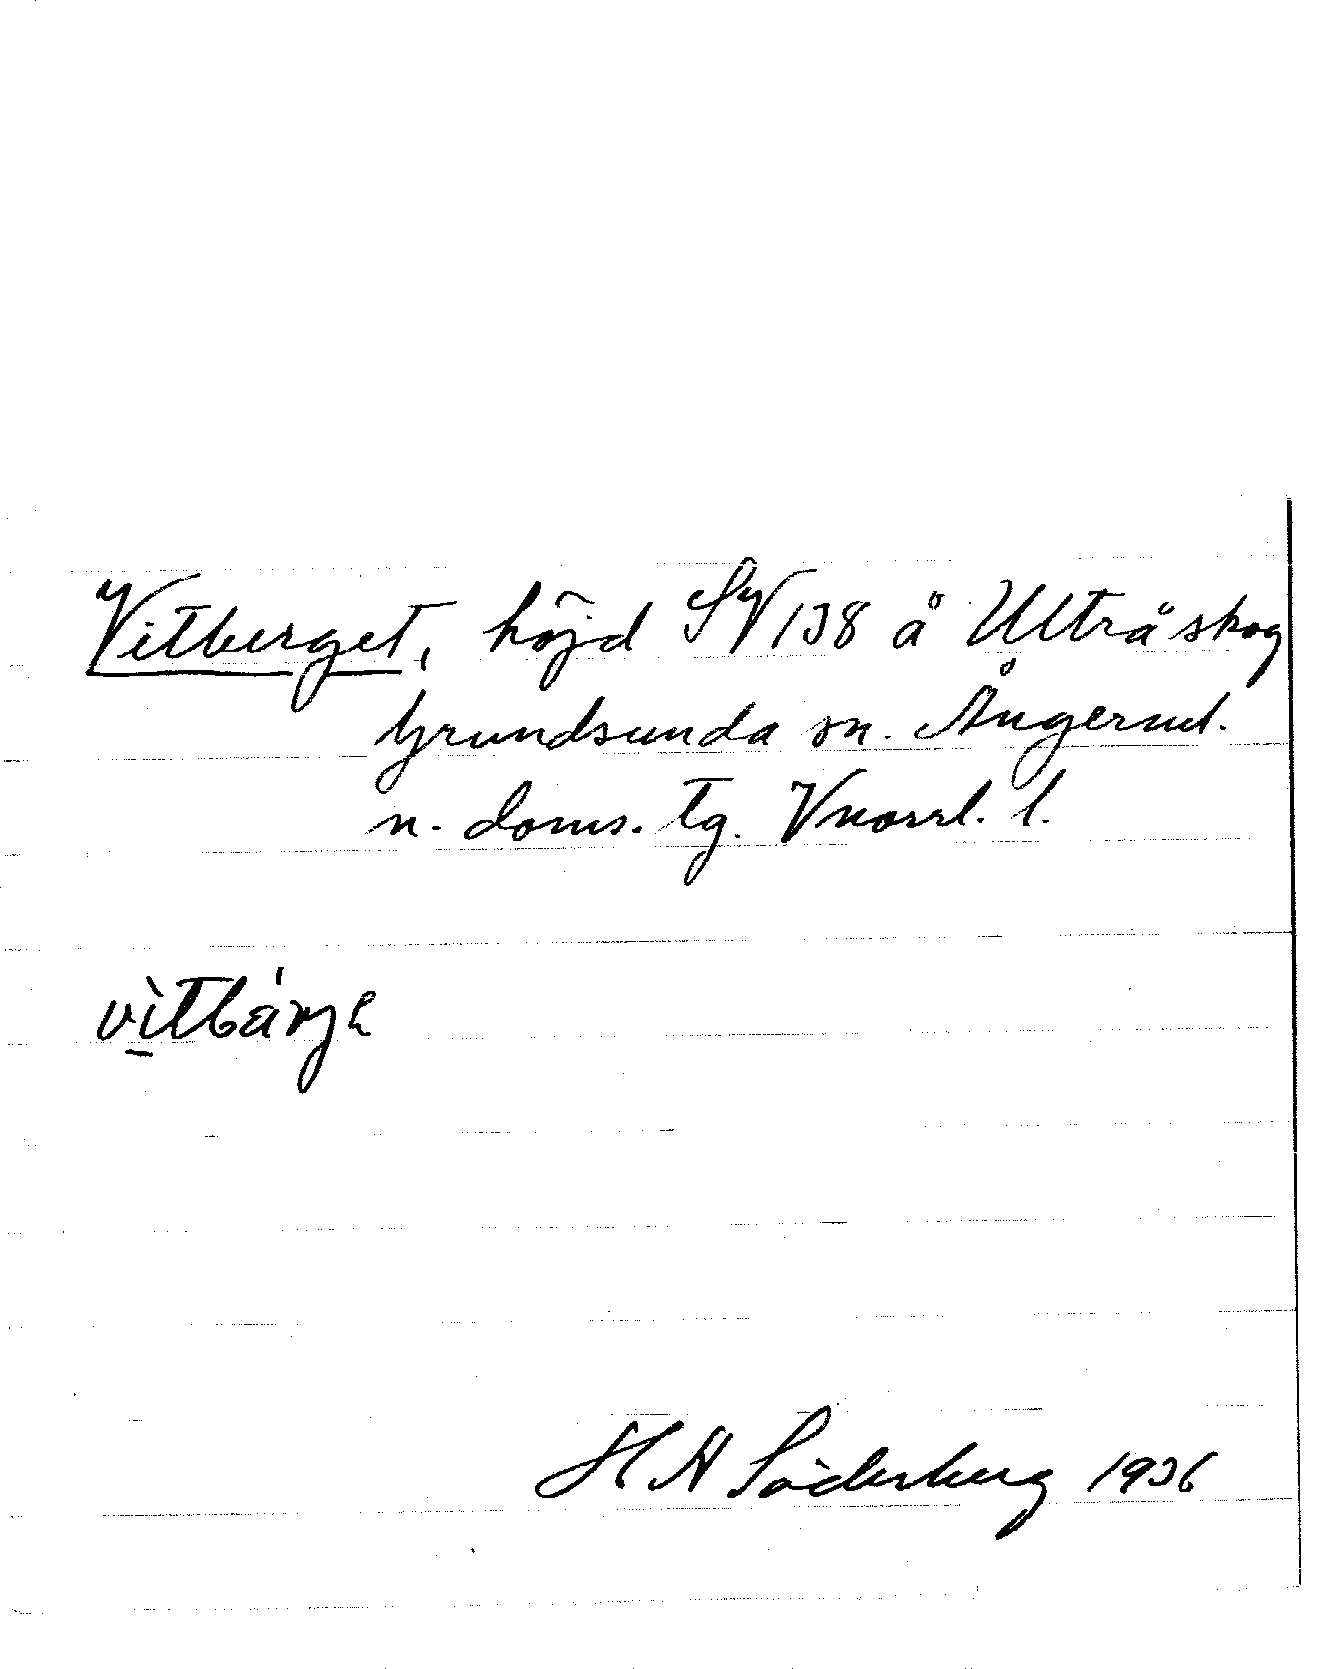 Vitberget, höjd SV 138 å Ulträskog
Grundsunda sn. Ångerml.
n. doms. tg. Vnorrl. l.
vìtbárje
H A Söderberg 1936